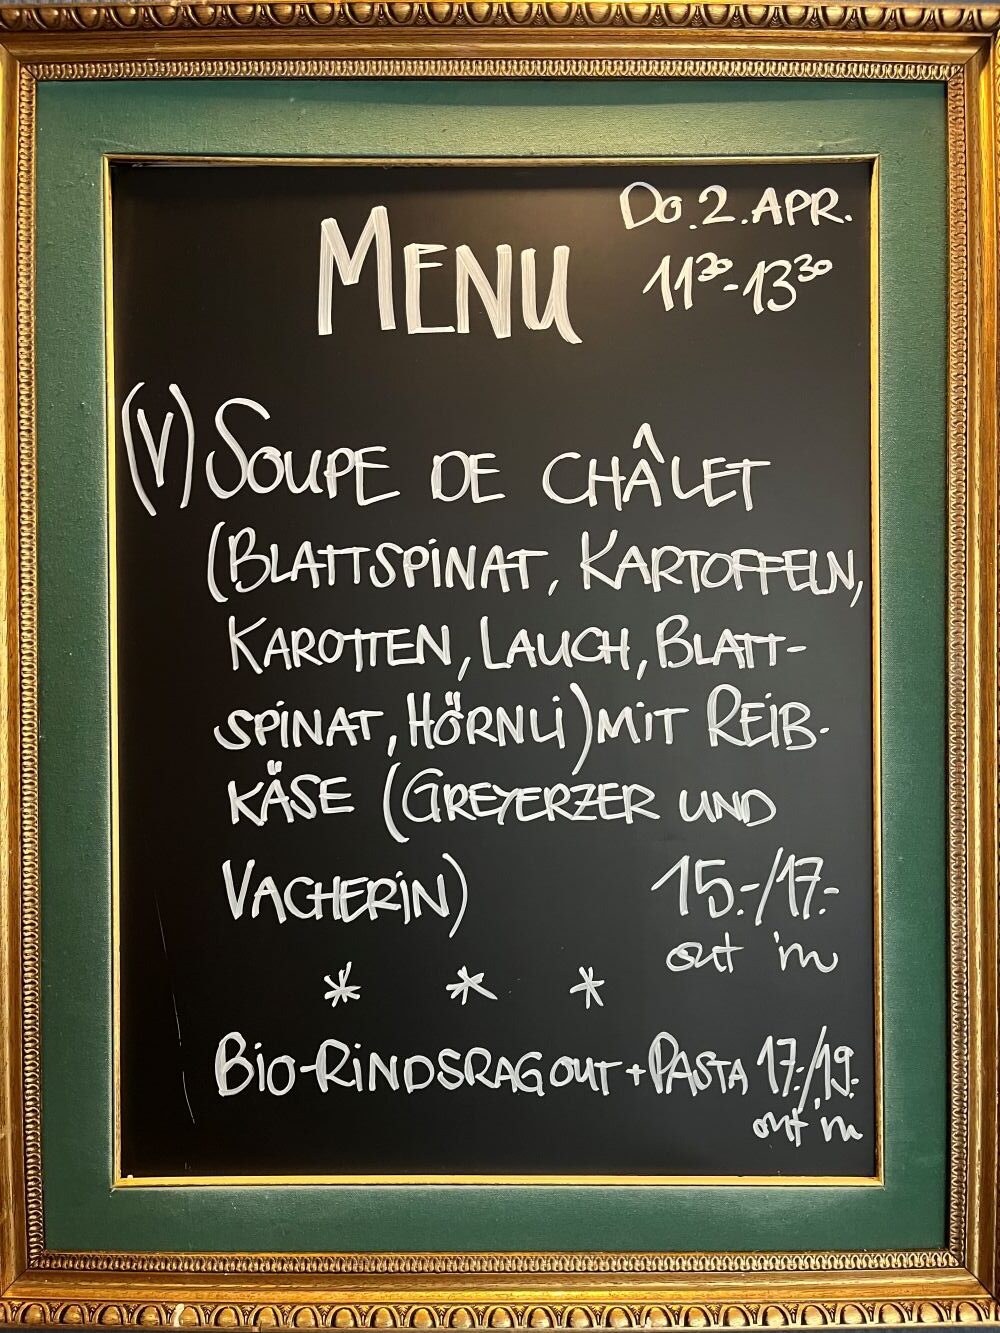 Do. 2. APR.
MENU
11³⁰-13³⁰
(V) SOUPE DE CHÂLET
(BLATTSPINAT, KARTOFFELN,
KAROTTEN, LAUCH, BLATT-
SPINAT, HÖRNLI) MIT REIB-
KÄSE (GREYERZER UND
VACHERIN) 15.-/17.-
out in
* * *
BIO-RINDSRAGOUT + PASTA 17.-/19.-
out in